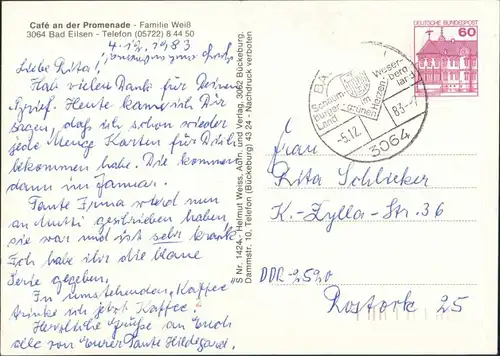 Café an der Promenade - Familie Weiß
3064 Bad Eilsen - Telefon (05722) 8 44 50
4.12.1983
Liebe Rita!
Hab vielen Dank für Deinen
Brief. Heute kann ich Dir
sagen, daß ich schon wieder
jede Menge Karten für Dich
bekommen habe. Die kommen
dann im Januar.
Tante Erma wird nun
an Mutti geschrieben haben,
sie war und ist sehr krank.
Ich habe ihr die blaue
Serie gegeben.
In umstehenden "Kaffee"
trinke ich jetzt Kaffee!
Herzliche Grüße an Euch
alle von Eurer Tante Hildegard.
Nr. 1424 - Helmut Weiss, Adh. und Verlag, 3062 Bückeburg,
Dammstr. 10, Telefon (Bückeburg) 43 24 - Nachdruck verboten
DEUTSCHE BUNDESPOST
60
Schaum-
burger
Land
Weser-
berg
land
-5.12.
83.-
3064
Frau
Rita Schlicker
K.-Zylla-Str. 36
DDR-2520
Rostock 25